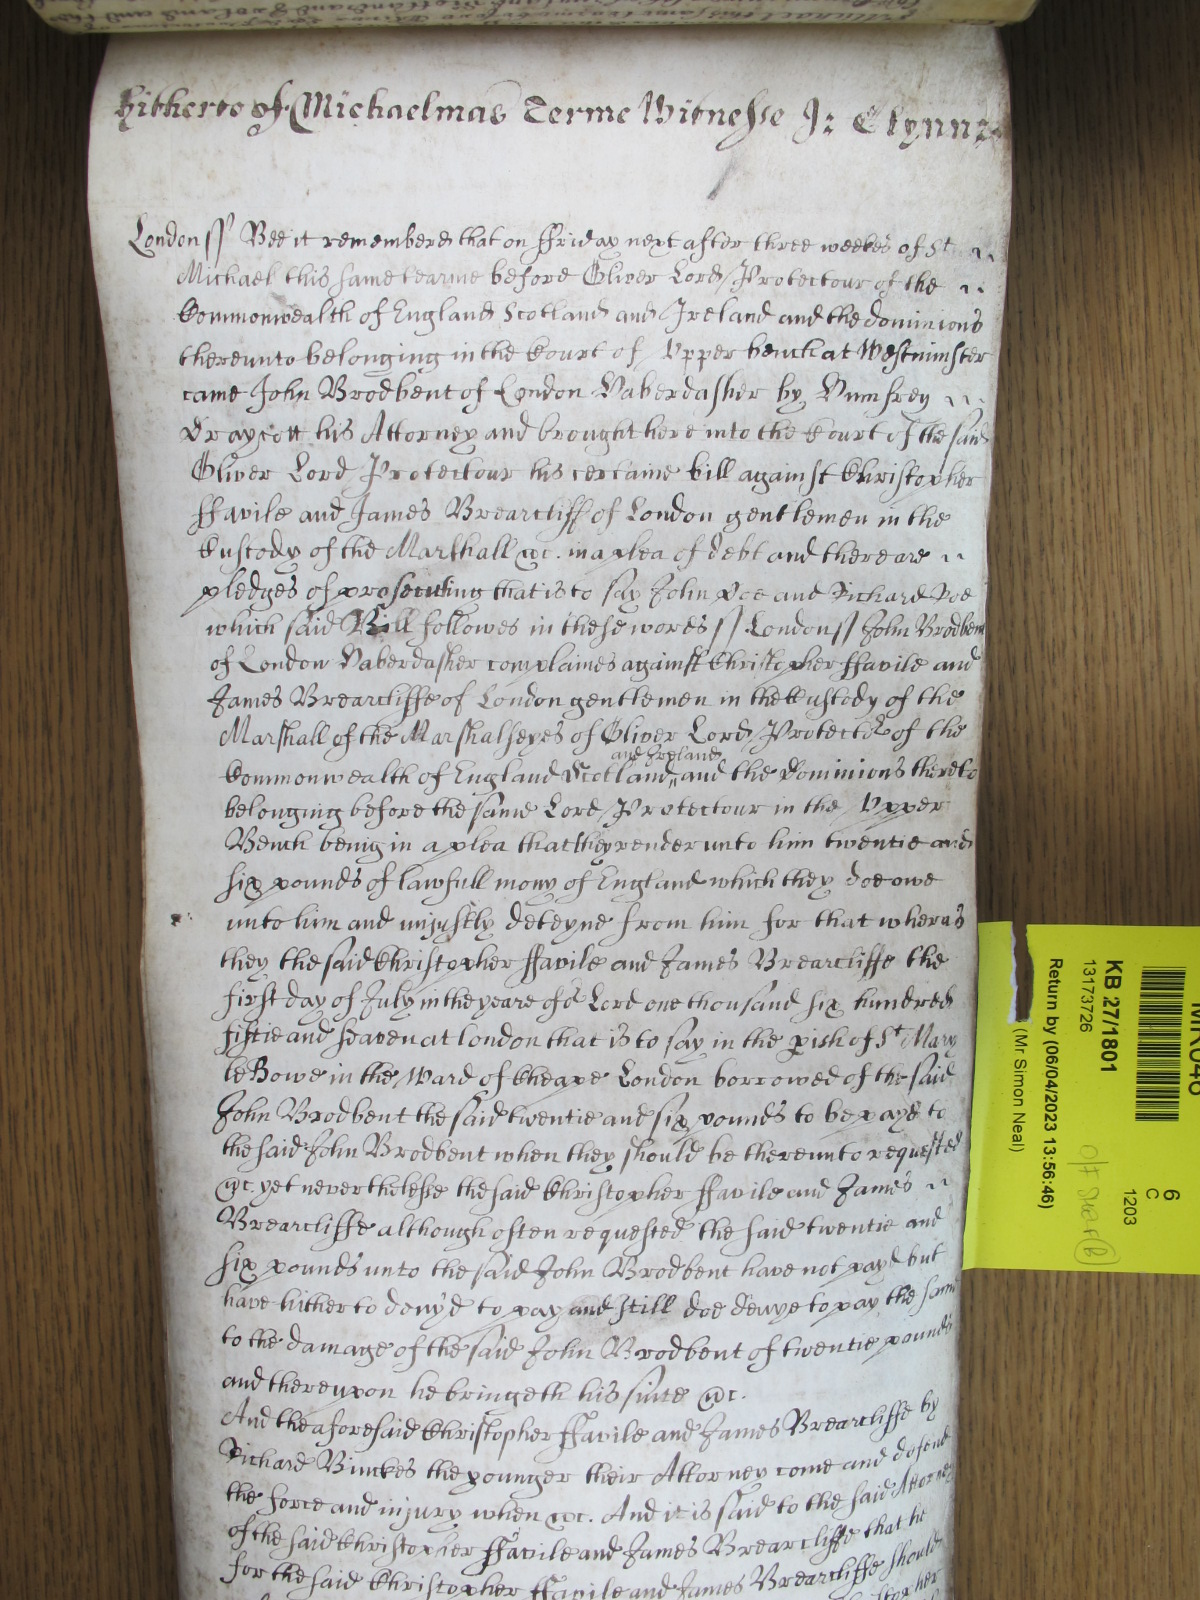 hitherto of Michaelmas Terme Witnesse J: Glynn
London ss Bee it remembred that on ffriday next after three weekes of St
Michael this same tearme before Oliver Lord Protectour of the
Commonwealth of England Scotland and Ireland and the dominions
thereunto belonging in the Court of Upper bench at Westminster
came John Brodbent of London Haberdasher by Humfrey
Draycott his Attorney and brought here into the Court of the said
Oliver Lord Protectour his certaine bill against Christopher
ffavile and James Brearcliff of London gentlemen in the
Custody of the Marshall &c. in a plea of debt and there are
pledges of prosecuting that is to say John Doe and Richard Roe
which said Bill followes in these words ss London ss John Brodbent
of London Haberdasher complaines against Christopher ffavile and
James Brearcliffe of London gentlemen in the Custody of the
Marshall of the Marshalseyes of Oliver Lord Protector of the
and Ireland
Commonwealth of England Scotland and the Dominions thereto
belonging before the same Lord Protectour in the Upper
Bench being in a plea that they render unto him twentie and
six pounds of lawfull mony of England which they doe owe
unto him and unjustly deteyne from him for that wheras
they the said Christopher ffavile and James Brearcliffe the
first day of July in the yeare of or Lord one thousand six hundred
fiftie and seaven at London that is to say in the pish of St Mary
le Bowe in the Ward of Cheape London borrowed of the said
John Brodbent the said twentie and six pounds to be payd to
the said John Brodbent when they should be thereunto requested
&c. yet neverthelesse the said Christopher ffavile and James
Brearcliffe although often requested the said twentie and
six pounds unto the said John Brodbent have not payd but
have hitherto denyd to pay and still doe denye to pay the same
to the damage of the said John Brodbent of twentie pounds
and thereupon he bringeth his suite &c.
And the aforesaid Christopher ffavile and James Brearcliffe by
Richard Binckes the younger their Attorney come and defend
the force and injury when &c. And it is said to the said Attorney
of the said Christopher ffavile and James Brearcliffe that he
for the said Christopher ffavile and James Brearcliffe should
KB 27/1801
13173726
Return by (06/04/2023 13:56:46)
(Mr Simon Neal)
6
C
1203